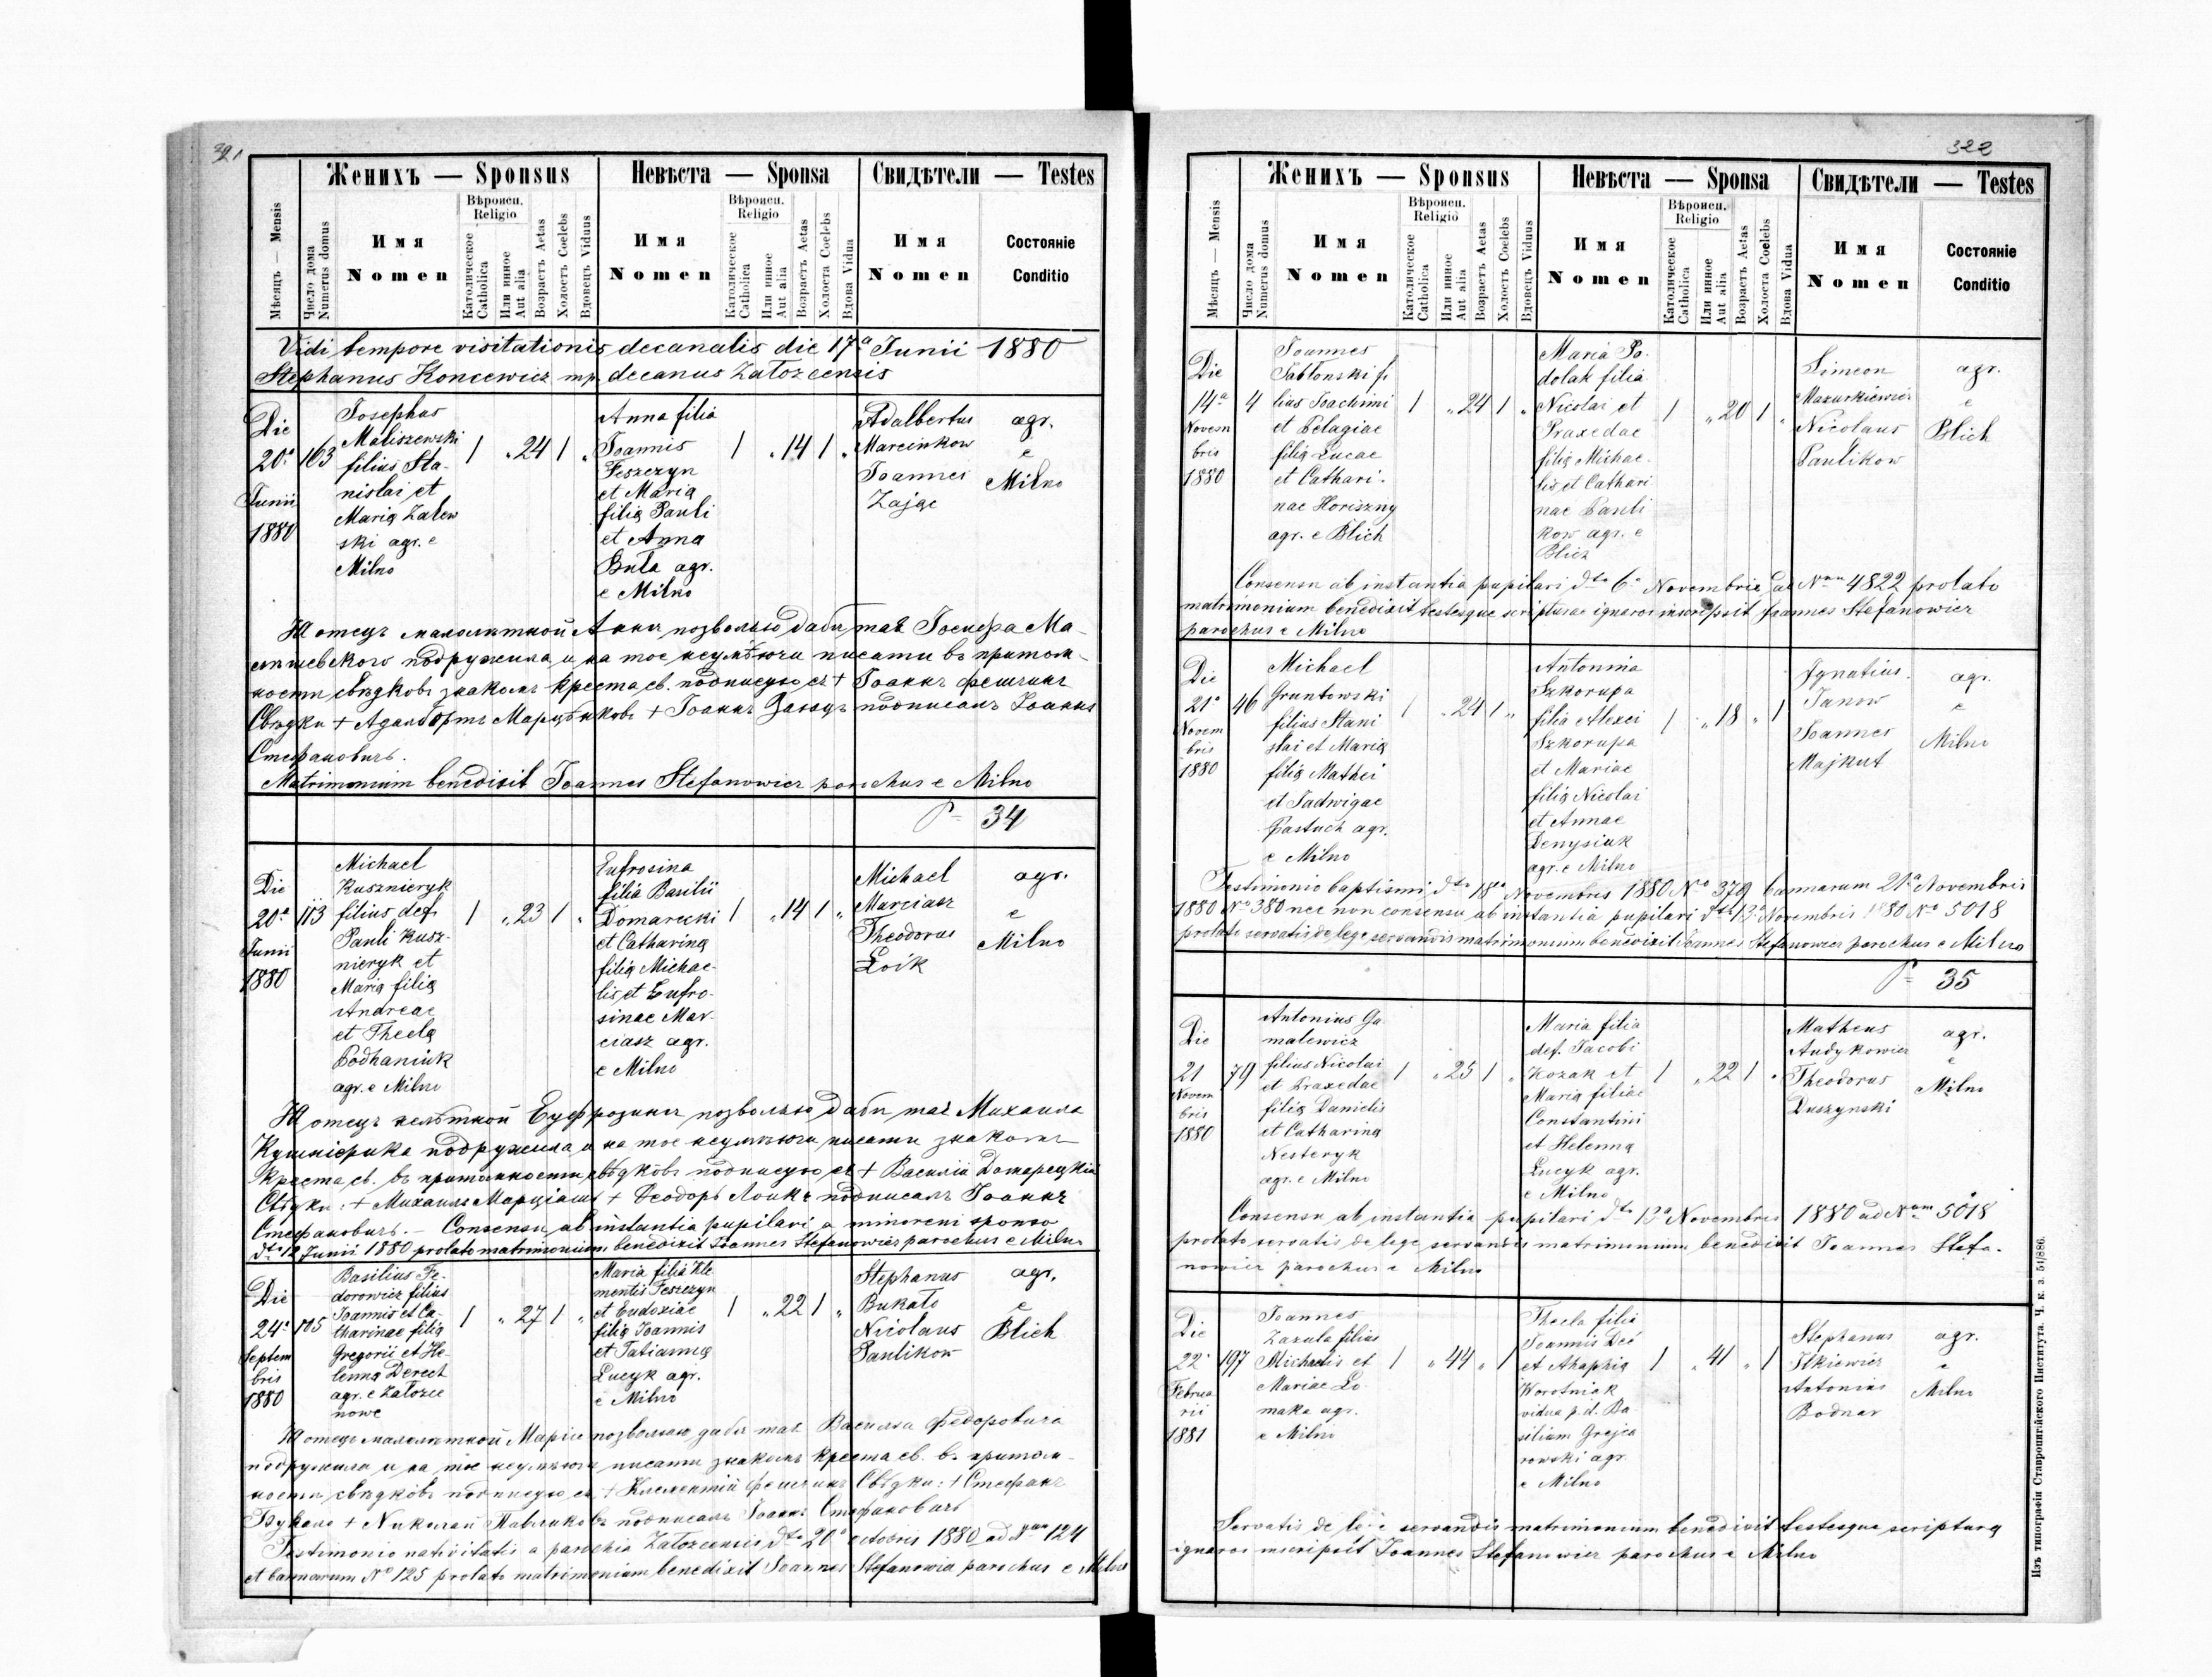 321
Женихъ — Sponsus
Невѣста — Sponsa
Свидѣтели — Testes
Мѣсяцъ — Mensis
Число дома
Numerus domus
Имя
Nomen
Вѣроисп.
Religio
Католическое
Catholica
Или инное
Aut alia
Возрастъ Aetas
Холостъ Coelebs
Вдовецъ Viduus
Имя
Nomen
Вѣроисп.
Religio
Католическое
Catholica
Или инное
Aut alia
Возрастъ Aetas
Холоста Coelebs
Вдова Vidua
Имя
Nomen
Состояніе
Conditio
Vidi tempore visitationis decanalis die 17ª Junii 1880
Stephanus Koncewicz mp. decanus Załozcensis
Die
20ª
Junii
1880
163
Josephus
Maliszewski
filius Sta-
nislai et
Maria Zalew
ski agr. e
Milno
1 „ 24 1 „
Anna filia
Joannis
Feszczyn
et Maria
filia Pauli
et Anna
Buła agr.
e Milno
1 „ 14 1 „
Adalbertus
Marcinkow
Joannes
Zając
agr.
e
Milno
Я отецъ малолѣтной Анны позволяю дабы тая Іосифа Ма-
лишевского подружила и на тое неумѣючи писати въ притом-
ности свѣдковъ знакомъ креста св. подписуюся + Іоаннъ Фещинъ
Свѣдки + Адальбертъ Марцѣнковъ + Іоаннъ Заюцъ подписалъ Іоаннъ
Стефановичъ.
Matrimonium benedixit Joannes Stefanowicz parochus e Milno
P= 34
Die
20ª
Junii
1880
113
Michael
Kusznieryk
filius def.
Pauli Kusz-
nieryk et
Maria filia
Andreae
et Thecla
Podhaniuk
agr. e Milno
1 „ 23 1 „
Eufrosina
filia Basilii
Domarecki
et Catharina
filia Michae-
lis et Eufro-
sinae Mar-
ciasz agr.
e Milno
1 „ 14 1 „
Michael
Marciasz
Theodorus
Łoik
agr.
e
Milno
Я отецъ нелѣтной Еуфрозины позволяю дабы тая Михаила
Кушнірика подружила и на тое неумѣючи писати знакомъ
креста св. въ притомности свѣдковъ подписуюся + Василій Домарецкій
Свѣдки: + Михаилъ Марціашъ + Ѳеодоръ Лоикъ подписалъ Іоаннъ
Стефановичъ. — Consensu ab instantia pupilari a minoreni sponso
dto 12 Junii 1880 prolato matrimonium benedixit Joannes Stefanowicz parochus e Milno
Die
24ª
Septem
bris
1880
105
Basilius Fe-
dorowicz filius
Joannis et Ca-
tharinae filia
Gregorii et He-
lenna Derech
agr. e Załozce
nowe
1 „ 27 1 „
Maria filia Kle
mentis Feszczyn
et Eudoxiae
filia Joannis
et Tatianna
Łucyk agr.
e Milno
1 „ 22 1 „
Stephanus
Bukało
Nicolaus
Paulikow
agr.
e
Blich
Я отецъ малолѣтной Маріи позволяю дабы тая Василія Федоровича
подружила и на тое неумѣючи писати знакомъ креста св. въ притом-
ности свѣдковъ подписуюся + Клементій Фещинъ Свѣдки: + Стефанъ
Букало + Николай Павликовъ подписалъ Іоаннъ Стефановичъ
Testimonio nativitatis a parochia Załozcensis dto 20ª octobris 1880 ad Num 124
et bannorum No 125 prolato matrimonium benedixit Joannes Stefanowicz parochus e Milno
322
Женихъ — Sponsus
Невѣста — Sponsa
Свидѣтели — Testes
Мѣсяцъ — Mensis
Число дома
Numerus domus
Имя
Nomen
Вѣроисп.
Religio
Католическое
Catholica
Или инное
Aut alia
Возрастъ Aetas
Холостъ Coelebs
Вдовецъ Viduus
Имя
Nomen
Вѣроисп.
Religio
Католическое
Catholica
Или инное
Aut alia
Возрастъ Aetas
Холоста Coelebs
Вдова Vidua
Имя
Nomen
Состояніе
Conditio
Die
14ª
Novem
bris
1880
4
Joannes
Jabłonski fi
lius Joachimi
et Pelagiae
filia Lucae
et Cathari-
nae Horiszny
agr. e Blich
1 „ 24 1 „
Maria Po-
dolak filia
Nicolai et
Praxedae
filia Michae-
lis et Cathari
nae Pauli
kow agr. e
Blich
1 „ 20 1 „
Simeon
Mazurkiewicz
Nicolaus
Paulikow
agr.
e
Blich
Consensu ab instantia pupilari dto 6ª Novembris ad Num 4822 prolato
matrimonium benedixit testesque scripturae ignaros inscripsit Joannes Stefanowicz
parochus e Milno
Die
21ª
Novem
bris
1880
46
Michael
Gruntowski
filius Stani
slai et Maria
filia Mathei
et Jadwigae
Pastuch agr.
e Milno
1 „ 24 1 „
Antonina
Szkorupa
filia Alexei
Szkorupa
et Mariae
filia Nicolai
et Annae
Denysiuk
agr. e Milno
1 „ 18 „ 1
Ignatius
Janow
Joannes
Majkut
agr.
e
Milno
Testimonio baptismi dto 18ª Novembris 1880 No 379 bannorum 21ª Novembris
1880 No 380 nec non consensu ab instantia pupilari dto 13ª Novembris 1880 No 5018
prolati servatis de lege servandis matrimonium benedixit Joannes Stefanowicz parochus e Milno
P= 35
Die
21
Novem
bris
1880
79
Antonius Ga
malewicz
filius Nicolai
et Praxedae
filia Danielis
et Catharina
Nesteryk
agr. e Milno
1 „ 25 1 „
Maria filia
def. Jacobi
Kozak et
Maria filiae
Constantini
et Helenna
Łucyk agr.
e Milno
1 „ 22 1 „
Matheus
Audykowicz
Theodorus
Duszynski
agr.
e
Milno
Consensu ab instantia pupilari dto 13ª Novembris 1880 ad Num 5018
prolato servatis de lege servandis matrimonium benedixit Joannes Stefa-
nowicz parochus e Milno
Die
22ª
Februa
rii
1881
197
Joannes
Zazula filius
Michaelis et
Mariae Ło-
maka agr.
e Milno
1 „ 44 „ 1
Thecla filia
Joannis Deć
et Ahaphia
Worotniak
vidua p. d. Ba
silium Grejca
rowski agr.
e Milno
1 „ 41 „ 1
Stephanus
Ilkiewicz
Antonius
Bodnar
agr.
e
Milno
Servatis de lege servandis matrimonium benedixit testesque scriptura
ignaros inscripsit Joannes Stefanowicz parochus e Milno
Изъ типографіи Ставропигійского Института. Ч. к. з. 51/886.